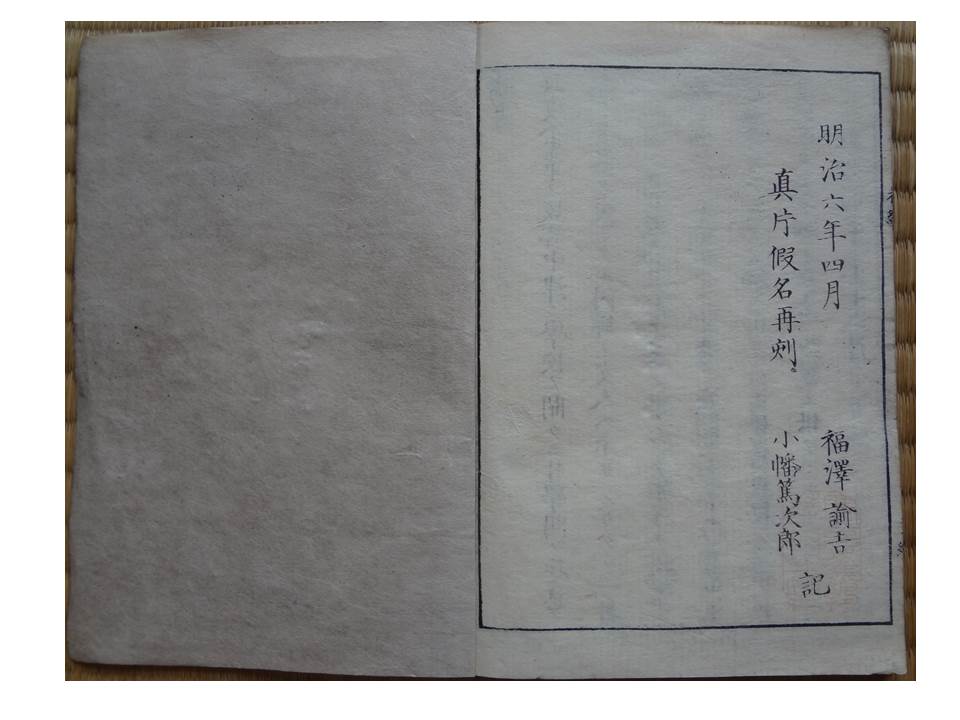 明治六年四月
真片假名再刻。
福澤諭吉
小幡篤次郎
記